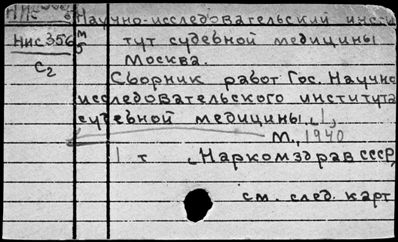 Научно-исследовательский инсти
НИС356 тут судебной медицины
Москва.
С2
Сборник работ Гос. Научно
исследовательского института
судебной медицины, 1,
М., 1940
1 т (Наркомздрав СССР,
см. след. карт